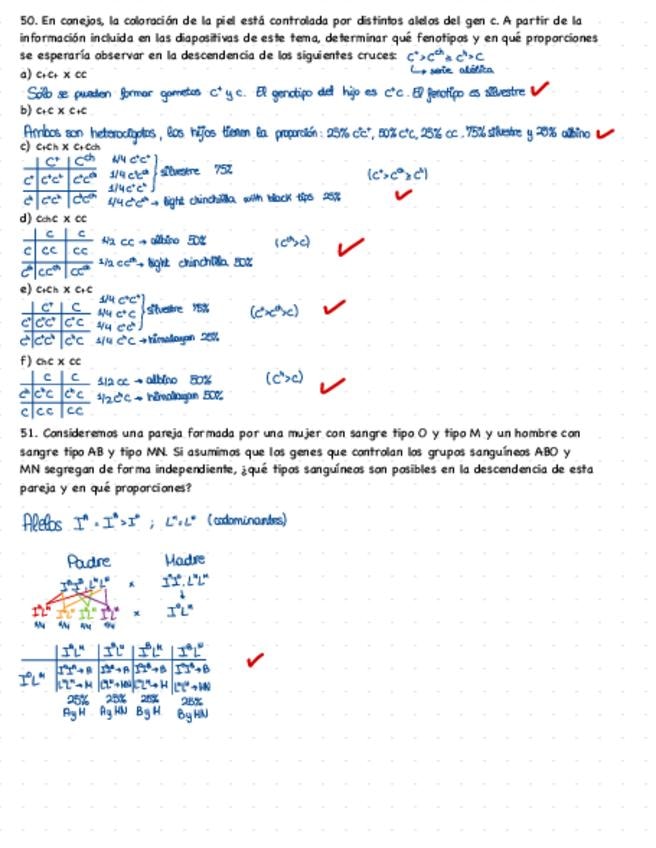 50. En conejos, la coloración de la piel está controlada por distintos alelos del gen c. A partir de la
información incluida en las diapositivas de este tema, determinar qué fenotipos y en qué proporciones
se esperaría observar en la descendencia de los siguientes cruces: c⁺>cᶜʰ≥cʰ>c
↳ serie alélica
a) c+c+ x cc
Sólo se pueden formar gametos c⁺ y c. El genotipo del hijo es c⁺c. El fenotipo es silvestre
b) c+c x c+c
Ambos son heterocigotos, los hijos tienen la proporción: 25% c⁺c⁺, 50% c⁺c, 25% cc. 75% silvestre y 25% albino
c) c+ch x c+cch
c⁺ cᶜʰ 1/4 c⁺c⁺
c⁺ c⁺c⁺ c⁺cᶜʰ 1/4 c⁺cᶜʰ silvestre 75% (c⁺>cᶜʰ≥cʰ)
1/4 c⁺cʰ
cʰ c⁺cʰ cʰcᶜʰ 1/4 cʰcᶜʰ → light chinchilla with black tips 25%
d) cchc x cc
c c 1/2 cc → albino 50% (cᶜʰ>c)
c cc cc
cᶜʰ ccᶜʰ ccᶜʰ 1/2 ccᶜʰ → light chinchilla 50%
e) c+ch x c+c
c⁺ c 1/4 c⁺c⁺
c⁺ c⁺c⁺ c⁺c 1/4 c⁺c silvestre 75% (c⁺>cʰ>c)
1/4 c⁺cʰ
cʰ c⁺cʰ cʰc 1/4 cʰc → himalayan 25%
f) chc x cc
c c 1/2 cc → albino 50% (cʰ>c)
cʰ cʰc cʰc 1/2 cʰc → himalayan 50%
c cc cc
51. Consideremos una pareja formada por una mujer con sangre tipo O y tipo M y un hombre con
sangre tipo AB y tipo MN. Si asumimos que los genes que controlan los grupos sanguíneos ABO y
MN segregan de forma independiente, ¿qué tipos sanguíneos son posibles en la descendencia de esta
pareja y en qué proporciones?
Alelos Iᴬ = Iᴮ > I⁰ ; Lᴹ = Lᴺ (codominantes)
Padre Madre
IᴬIᴮ, LᴹLᴺ x I⁰I⁰, LᴹLᴹ
↓
IᴬLᴹ IᴬLᴺ IᴮLᴹ IᴮLᴺ x I⁰Lᴹ
1/4 1/4 1/4 1/4
IᴬLᴹ IᴬLᴺ IᴮLᴹ IᴮLᴺ
I⁰Lᴹ IᴬI⁰→A IᴬI⁰→A IᴮI⁰→B IᴮI⁰→B
LᴹLᴹ→M LᴹLᴺ→MN LᴹLᴹ→M LᴹLᴺ→MN
25% 25% 25% 25%
A y M A y MN B y M B y MN